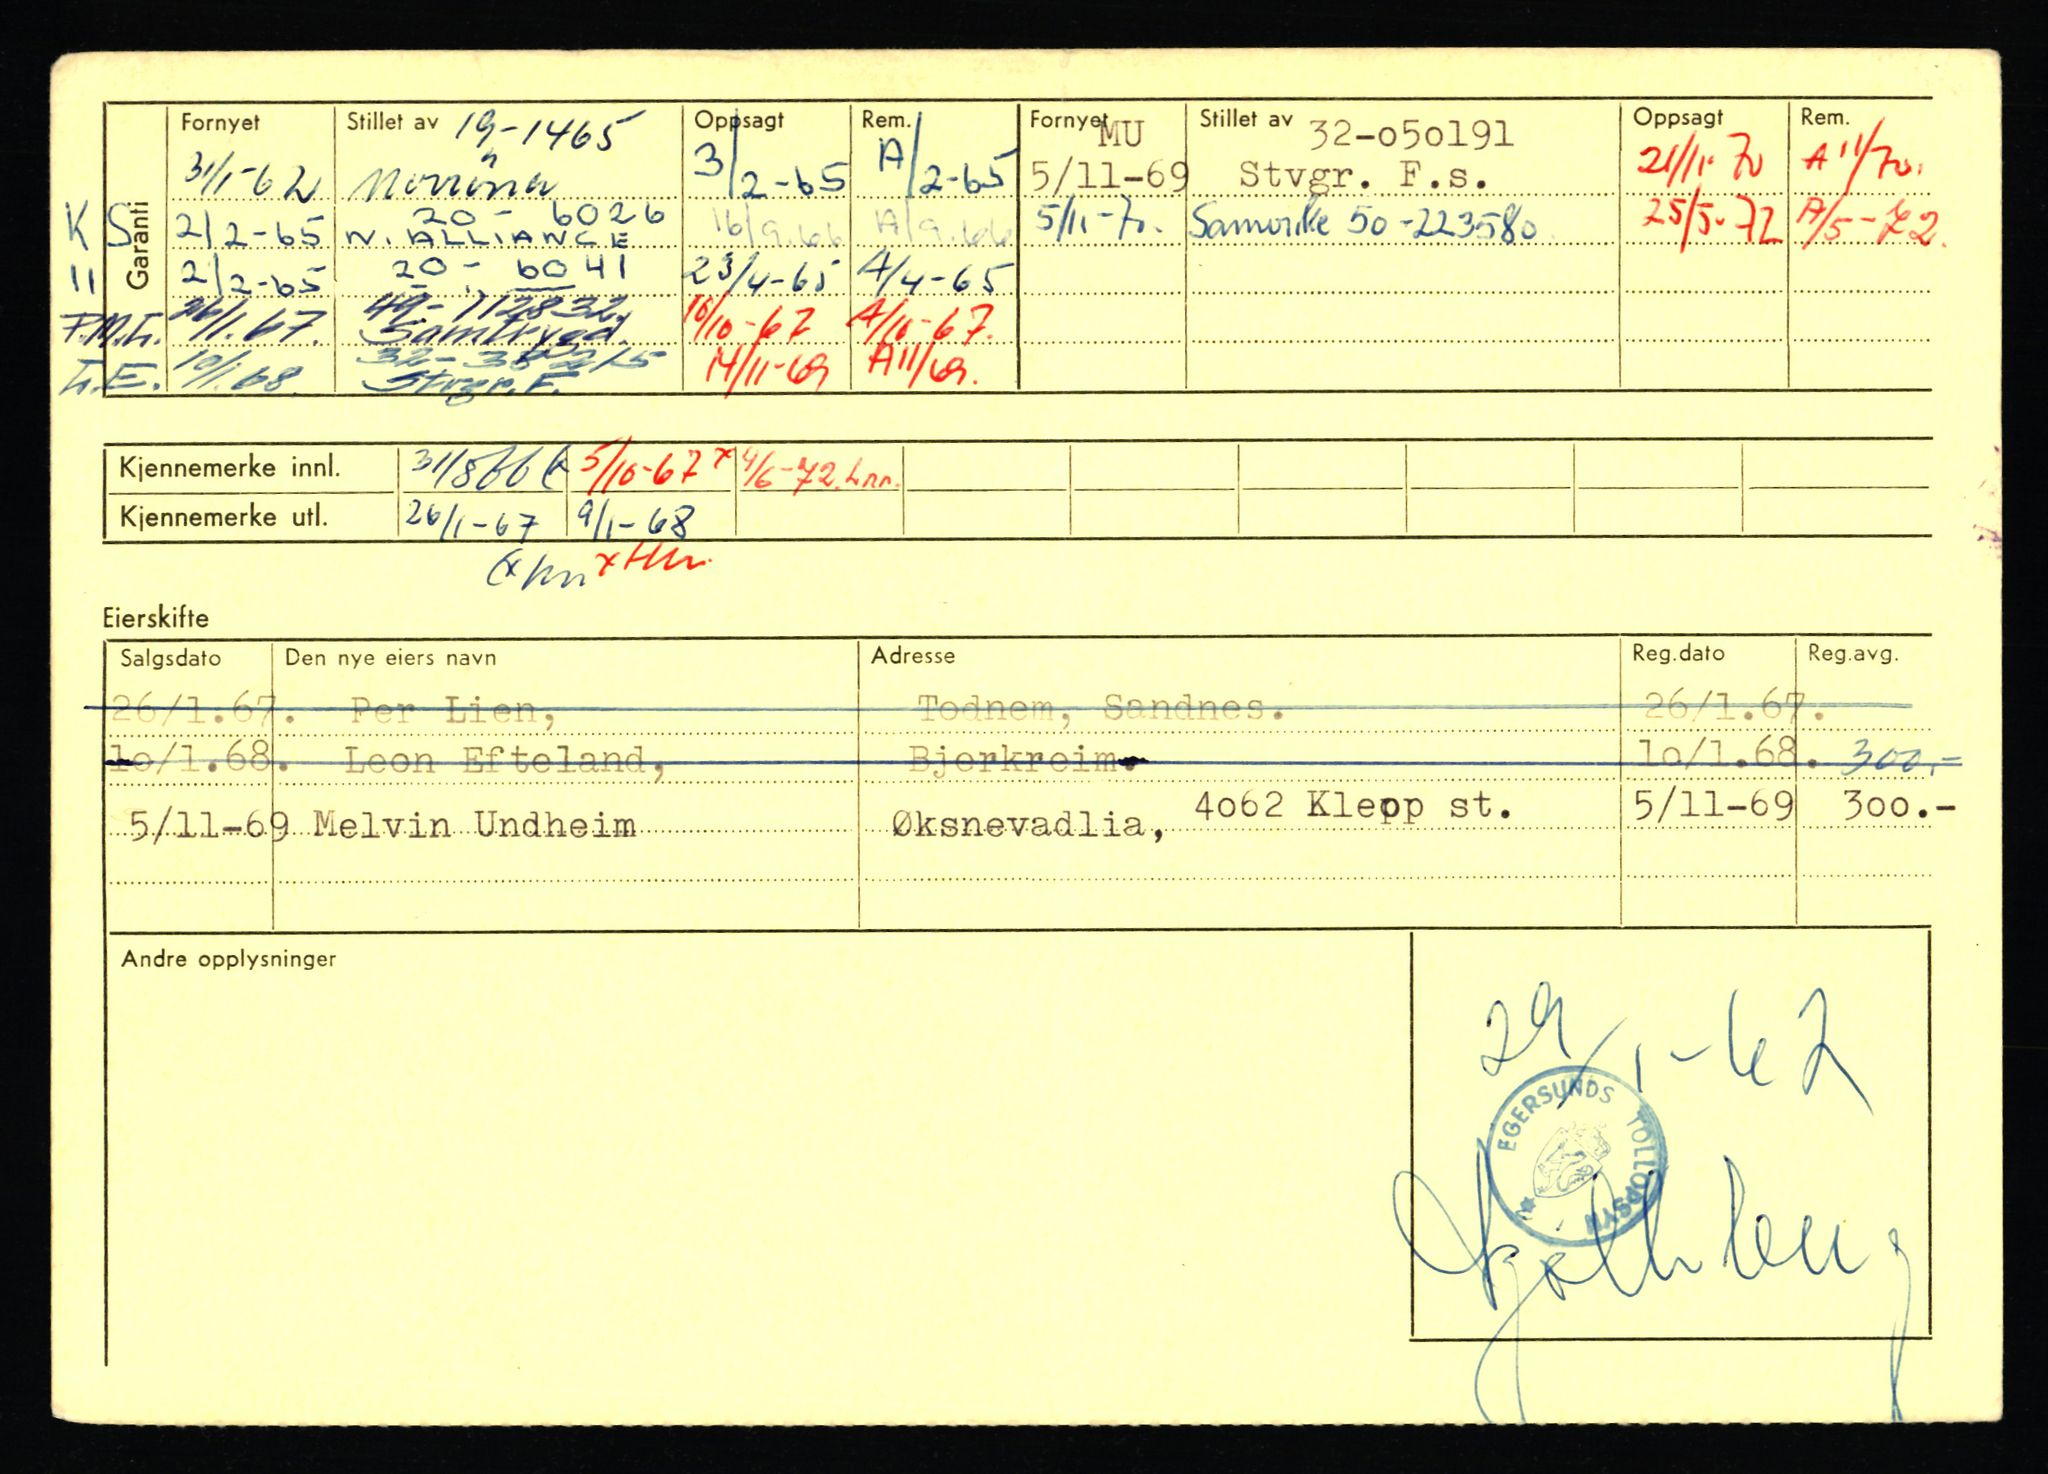 Garanti
Fornyet Stillet av 19-1465 Oppsagt Rem. Fornyet MU Stillet av 32-050191 Oppsagt Rem.
31/1-62 Norröna 3/2-65 A/2-65 5/11-69 Stvgr. F.s. 21/11-70 A 11/70.
20 - 6026
K S 2/2-65 N. ALLIANCE 16/9.66 A/9.66 5/11-70. Samvirke 50-223580 25/5-72 A/5-72.
11 2/2-65 20 - 6041 23/4-65 A/4-65
49-112832.
P.M.L. 26/1.67. Samtrygd. 16/10-67 A/10-67.
L.E. 10/1.68. Stvgr. F. 14/11-69 A11/69.
Kjennemerke innl. 31/8 66 5/10-67 x 9/6-72. Lnn.
Kjennemerke utl. 26/1-67 9/1-68
Eierskifte
Salgsdato Den nye eiers navn Adresse Reg.dato Reg.avg.
26/1.67. Per Lien, Todnem, Sandnes. 26/1.67.
10/1.68. Leon Efteland, Bjerkreim. 10/1.68. 300.-
5/11-69 Melvin Undheim Øksnevadlia, 4062 Klepp st. 5/11-69 300.-
Andre opplysninger
29/1-62
EGERSUNDS TOLLOPPSYN